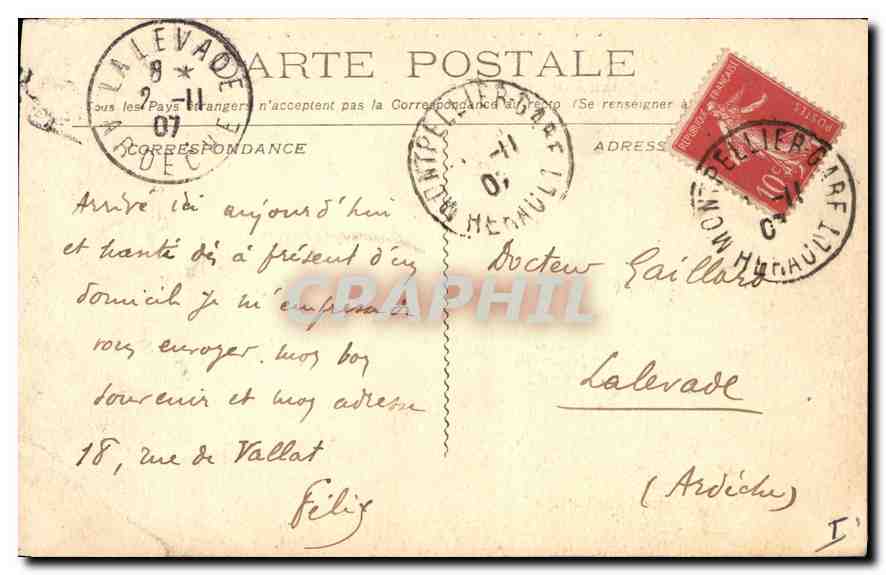 CARTE POSTALE
Tous les Pays étrangers n'acceptent pas la Correspondance au recto (Se renseigner à
CORRESPONDANCE
ADRESS
LALEVADE
8 *
2 -11
07
ARDÈCHE
MONTPELLIER-GARE
-11
07
HERAULT
REPUBLIQUE FRANÇAISE
POSTES
10 c
MONTPELLIER-GARE
-11
07
HERAULT
Arrivé ici aujourd'hui
et hanté dès à présent d'un
domicile je m'empresse de
vous envoyer mon bon
souvenir et mon adresse
18, rue de Vallat
Félix
Docteur Gaillard
Lalevade
(Ardèche)
CPAPHIL